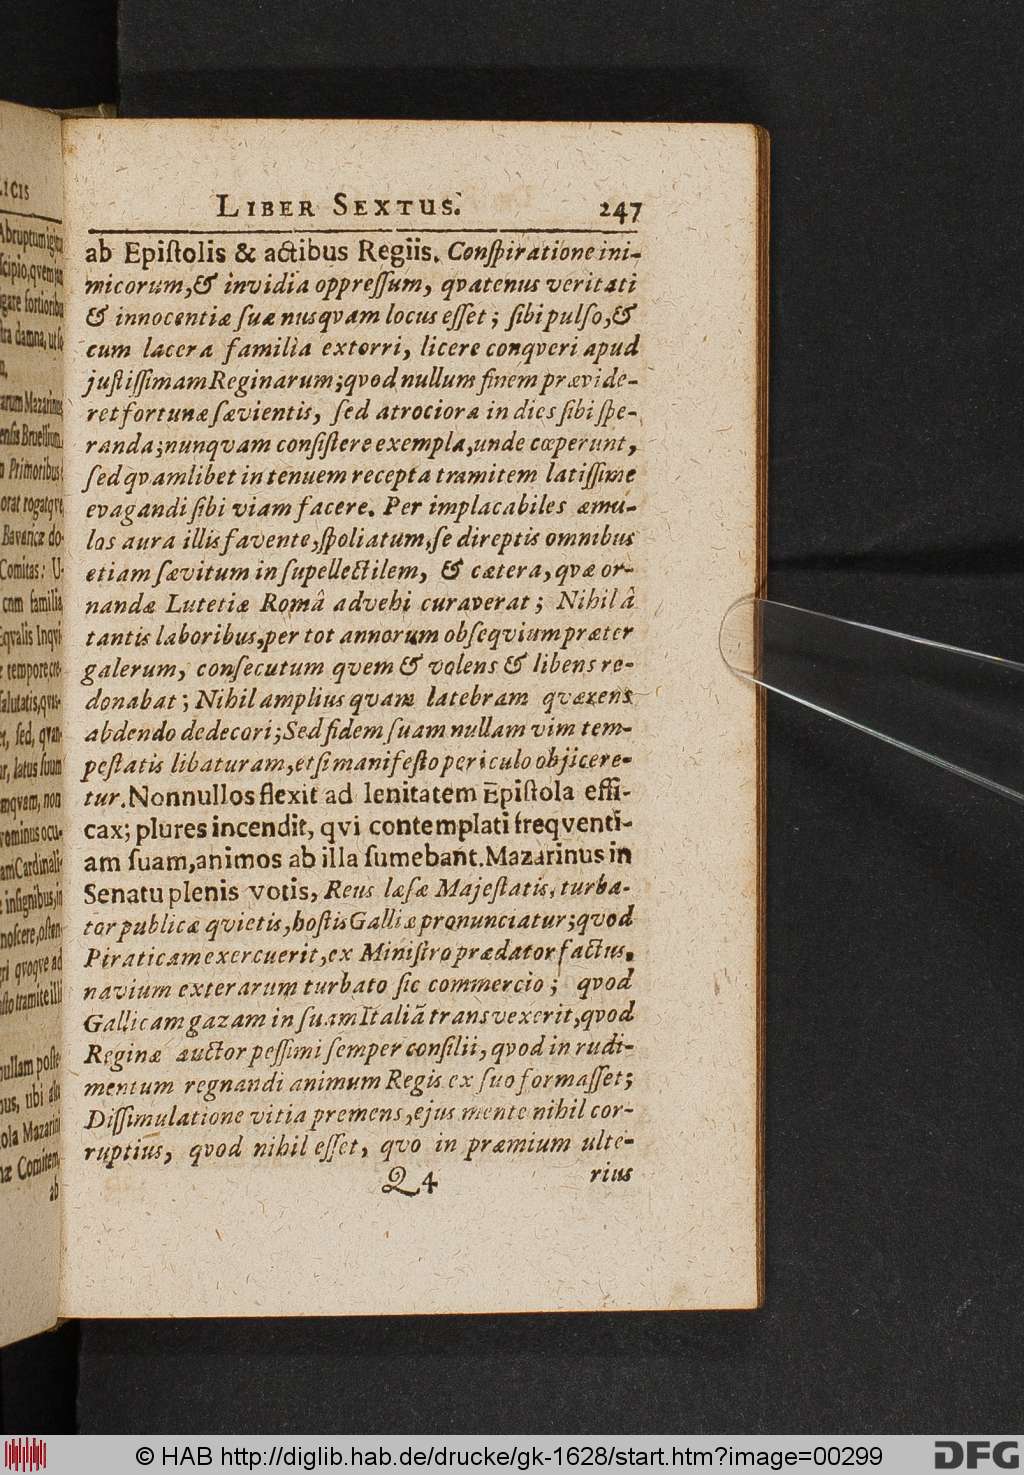 LIBER SEXTUS. 247
ab Epiſtolis & actibus Regiis. Conſpiratione ini-
micorum, & invidia oppreſſum, qvatenus veritati
& innocentiæ ſuæ nusqvam locus eſſet; ſibi pulſo, &
cum lacera familia extorri, licere conqveri apud
juſtiſſimam Reginarum; qvod nullum finem prævide-
ret fortunæ ſævientis, ſed atrociora in dies ſibi ſpe-
randa; nunqvam conſiſtere exempla, unde cœperunt,
ſed qvamlibet in tenuem recepta tramitem latiſſime
evagandi ſibi viam facere. Per implacabiles æmu-
los aura illis favente, ſpoliatum, ſe direptis omnibus
etiam ſævitum in ſupellectilem, & cætera, qvæ or-
nandæ Lutetiæ Româ advehi curaverat; Nihil â
tantis laboribus, per tot annorum obſeqvium præter
galerum, conſecutum qvem & volens & libens re-
donabat; Nihil amplius qvam latebram qværens
abdendo dedecori; Sed fidem ſuam nullam vim tem-
peſtatis libaturam, etſi manifeſto periculo objicere-
tur. Nonnullos flexit ad lenitatem Epiſtola effi-
cax; plures incendit, qvi contemplati freqventi-
am ſuam, animos ab illa ſumebant. Mazarinus in
Senatu plenis votis, Reus læſæ Majeſtatis, turba-
tor publicæ qvietis, hoſtis Galliæ pronunciatur; qvod
Piraticam exercuerit, ex Miniſtro prædator factus,
navium exterarum turbato ſic commercio; qvod
Gallicam gazam in ſuam Italiã transvexerit, qvod
Reginæ auctor peſſimi ſemper conſilii, qvod in rudi-
mentum regnandi animum Regis ex ſuo formaſſet;
Diſſimulatione vitia premens, ejus mente nihil cor-
ruptius, qvod nihil eſſet, qvo in præmium ulte-
Q 4 rius
© HAB http://diglib.hab.de/drucke/gk-1628/start.htm?image=00299
DFG